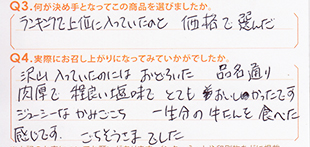 Q3.何が決め手となってこの商品を選びましたか。
ランキングで上位に入っていたのと 価格で選んだ
Q4.実際にお召し上がりになってみていかがでしたか。
沢山入っていたのには おどろいた 品名通り
肉厚で 程良い塩味で とても おいしかったです
ジューシーな かみごこち 一生分の牛たんを食べた
感じです. ごちそうさまでした